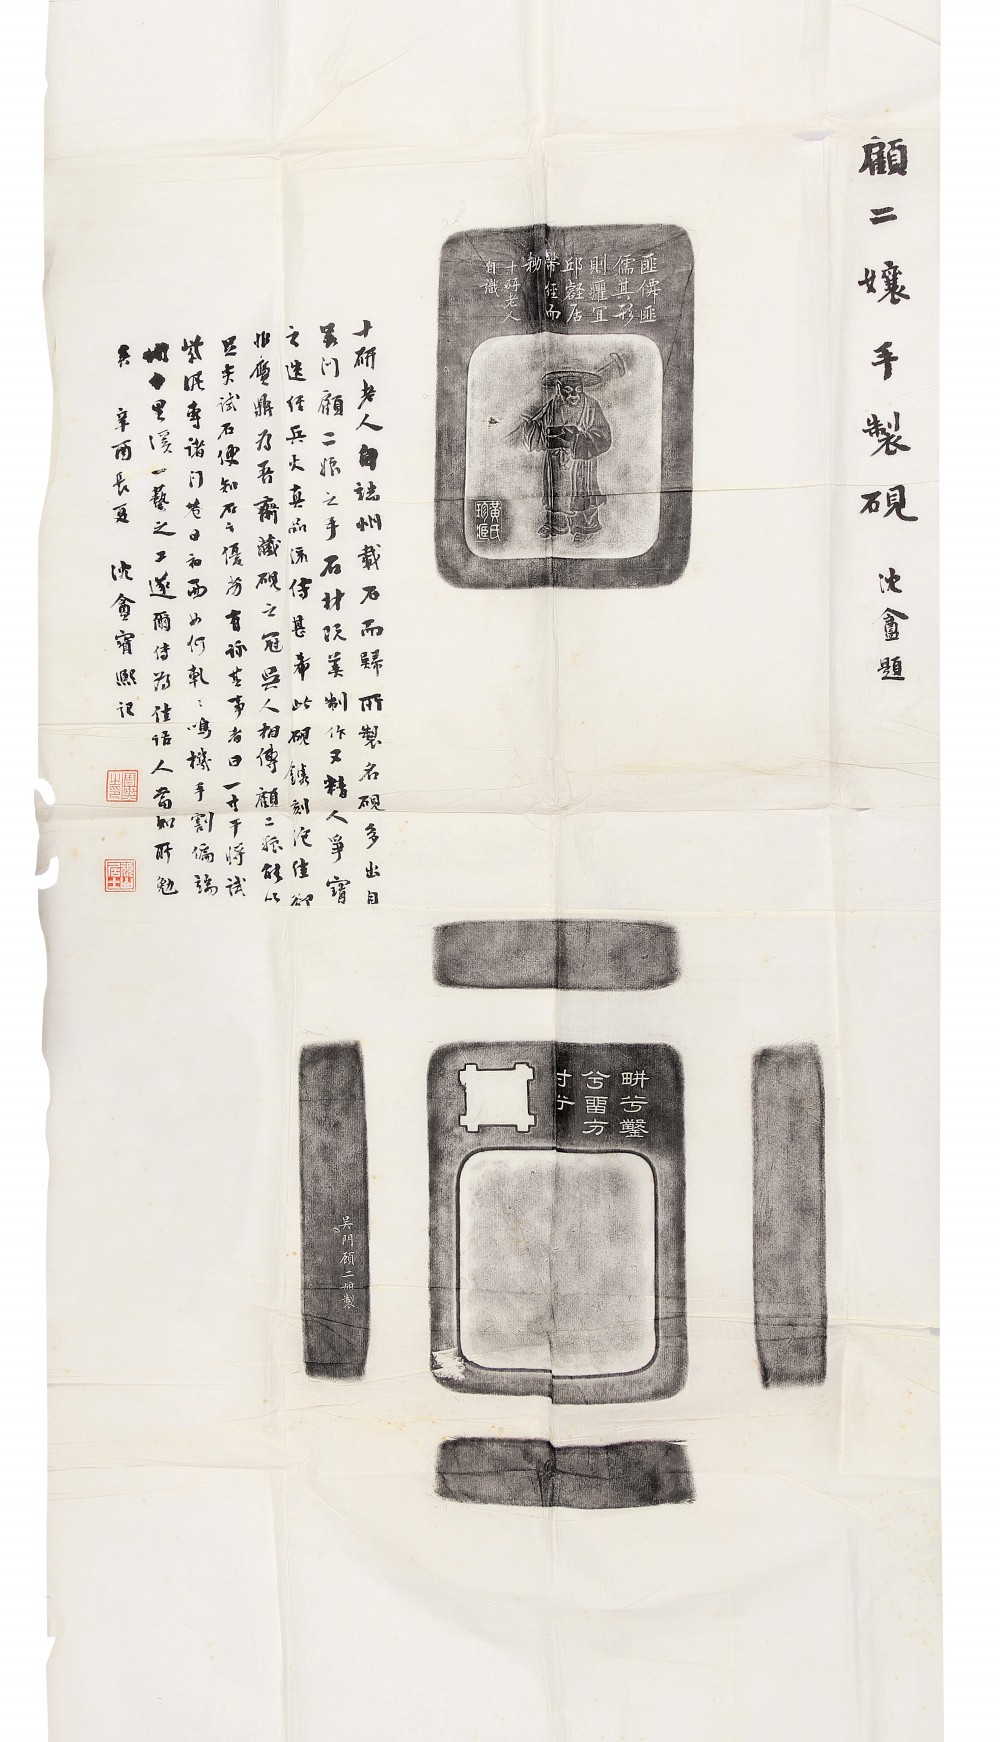 顧二孃手製硯 沈盦題
匪僊匪
儒其形
則癯宜
邱壑居
帶經而
鋤
十研老人
自識
黃氏
珍
十研老人自端州載石而歸所製名硯多出自
吳門顧二娘之手石材既美制作又精人爭寶
之迭經兵火真品流傳甚希此硯鐫刻絕佳
非贗鼎為吾齋藏硯之冠吳人相傳顧二娘能以
足尖試石便知石之優劣有詠其事者曰一寸干將試
紫泥專諸門巷日初西如何軋〻鳴機手割徧端
州十里溪一藝之工遂爾傳為佳話人當知所勉
矣 辛酉長夏 沈盦寶熙記
畊兮鑿
兮畱方
寸兮
吳門顧二娘製